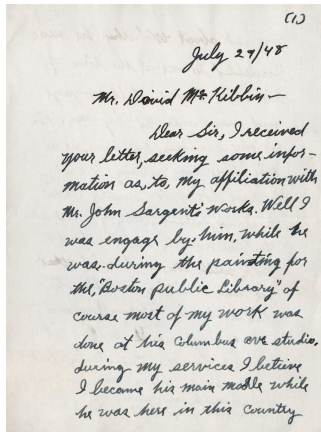 (1)
July 29/48
Mr. David McKibbin-
Dear Sir, I received
your letter, seeking some infor-
mation as, to, my affiliation with
Mr. John Sargent's works. Well I
was engage by him, while he
was during the painting for
the, "Boston Public Library" of
course most of my work was
done at his Columbus ave studio.
during my services I believe
I became his main modle while
he was here in this Country